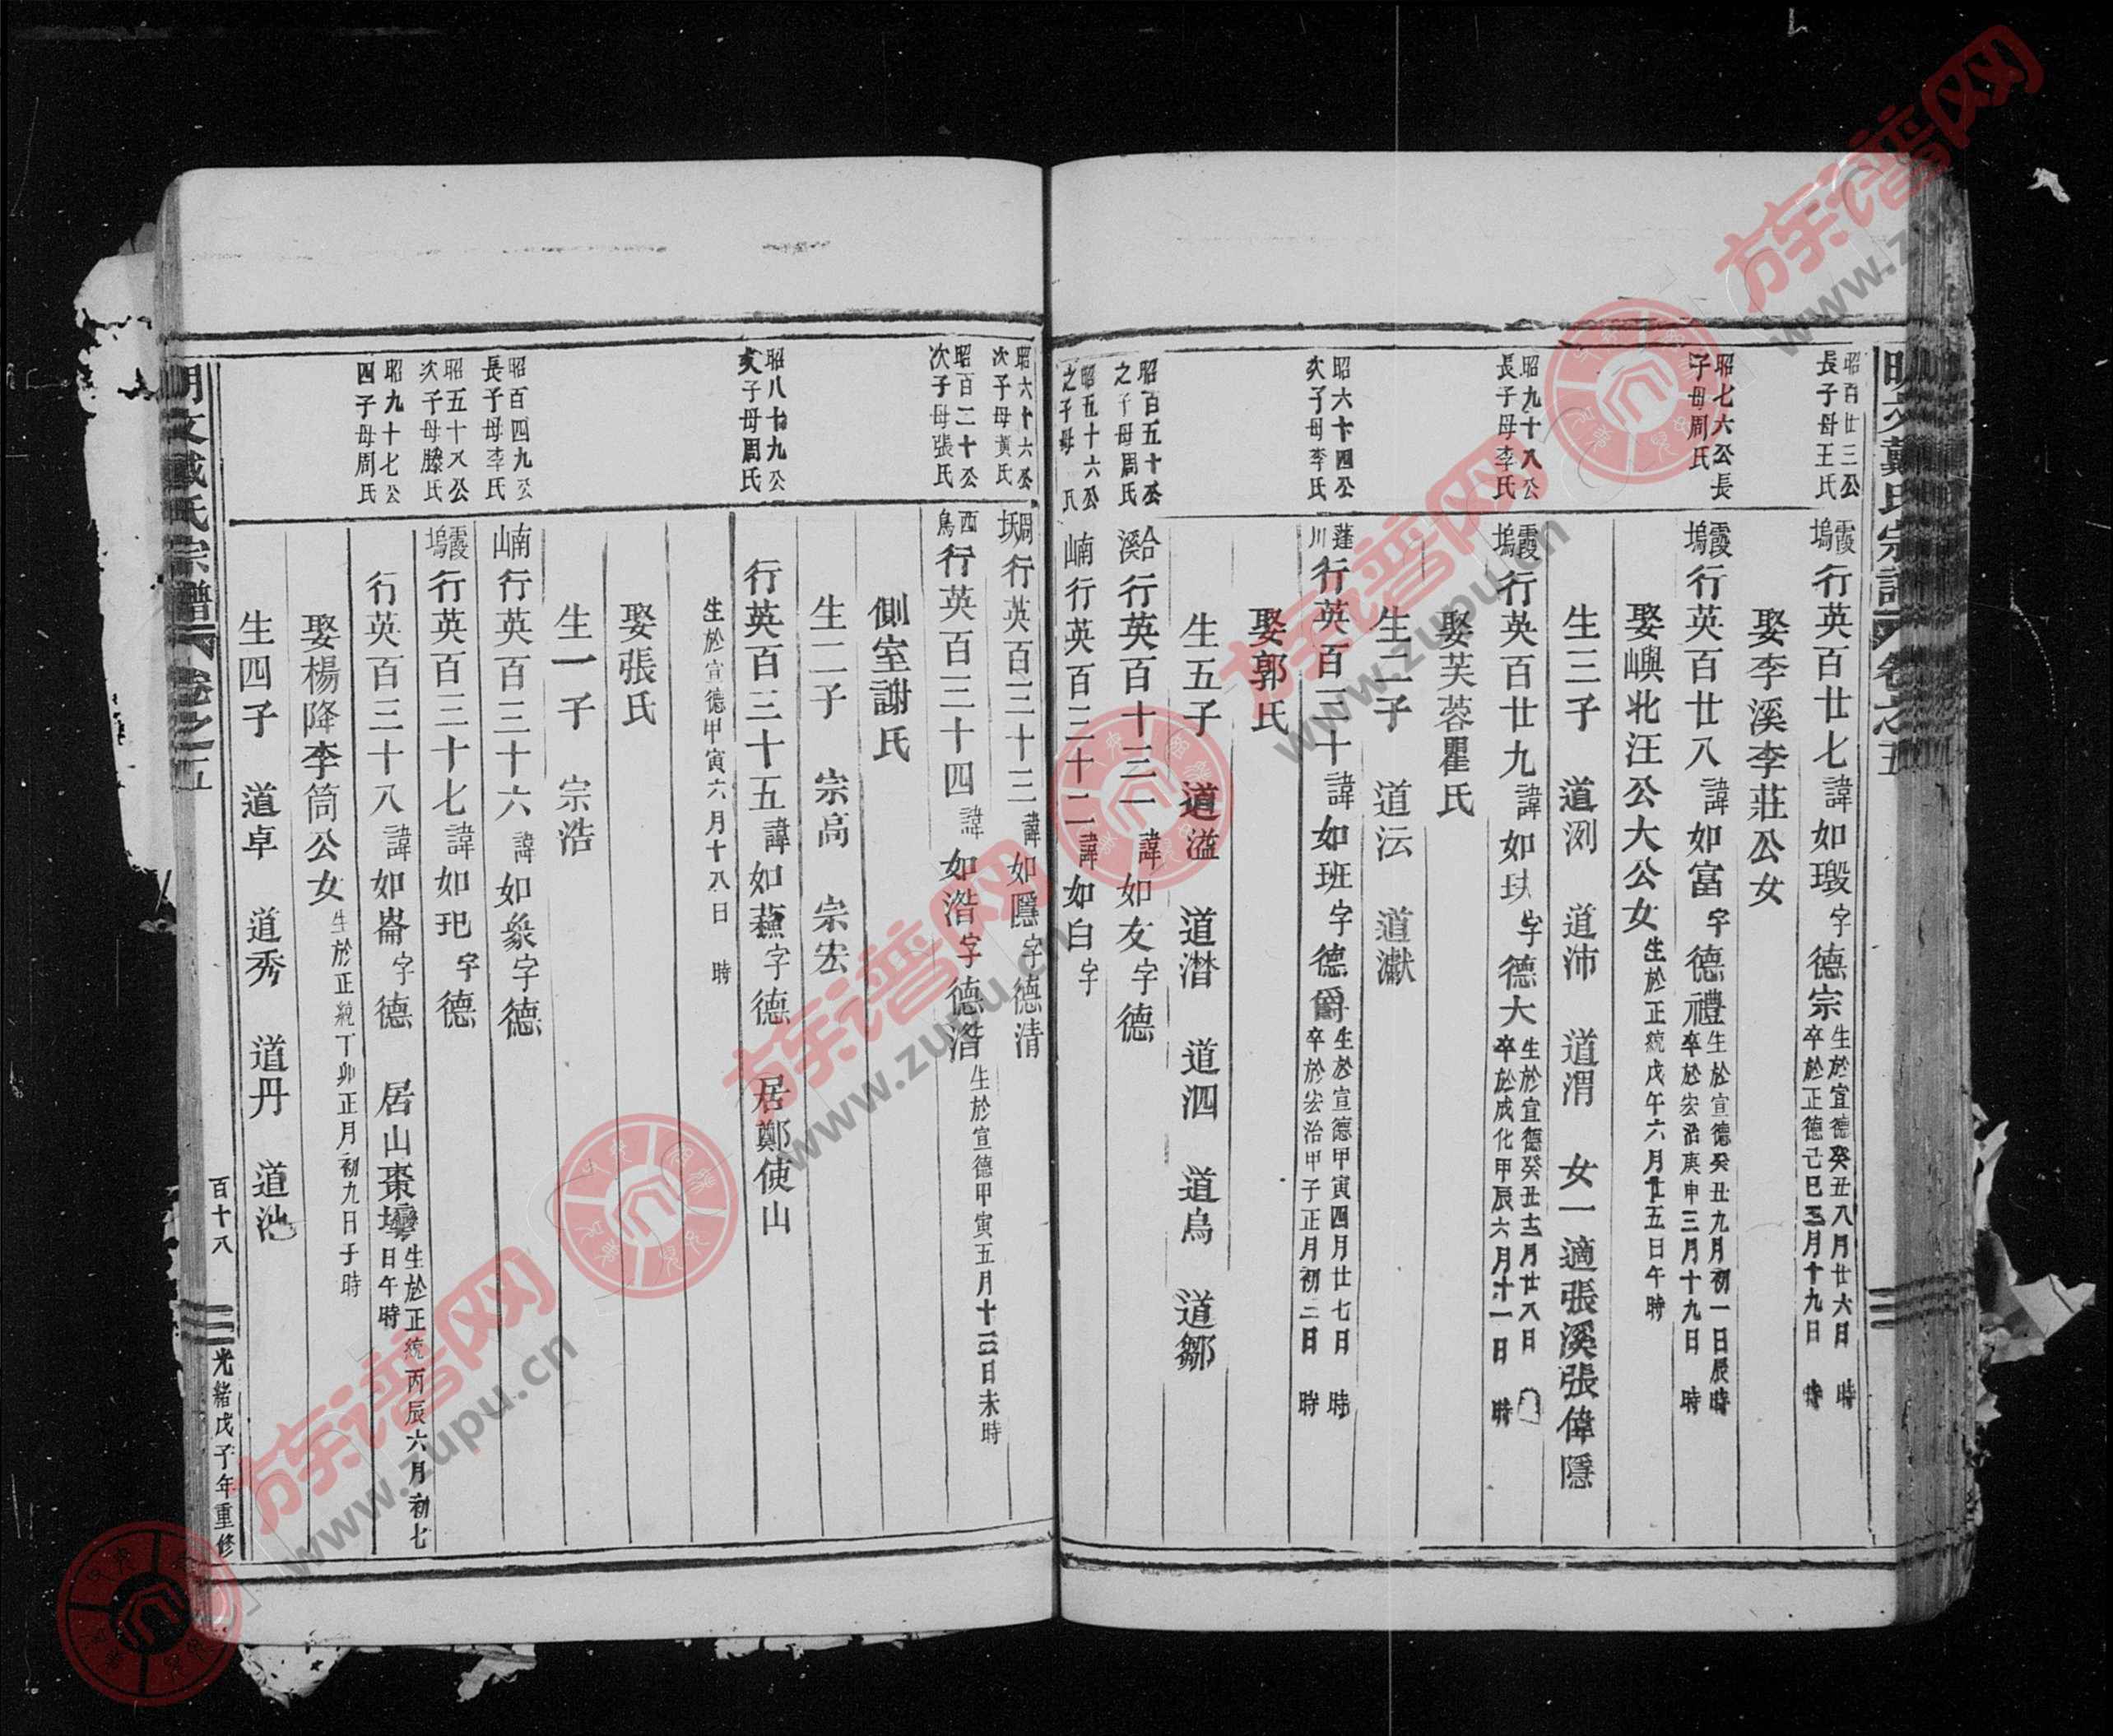 戴氏宗譜 卷之五
昭百廿三公
長子母王氏
霞塢
行英百廿七諱如瑖字德宗
生於宣德癸丑八月廿六日 時
卒於正德己巳三月十九日 時
娶李溪李莊公女
昭七六公長
子母周氏
霞塢
行英百廿八諱如富字德禮
生於宣德癸丑九月初一日辰時
卒於宏治庚申三月十九日 時
娶嶼北汪公大公女
生於正統戊午六月廿五日午時
生三子 道洌 道沛 道渭 女一適張溪張偉隱
昭九十八公
長子母李氏
霞塢
行英百廿九諱如玞字德大
生於宣德癸丑十二月廿八日
卒於成化甲辰六月十一日 時
娶芙蓉瞿氏
生二子 道沄 道瀫
昭六十四公
次子母李氏
蓬川
行英百三十諱如班字德爵
生於宣德甲寅四月廿七日 時
卒於宏治甲子正月初二日 時
娶郭氏
生五子 道溢 道潛 道泗 道鳥 道鄒
昭百五十公
之子母周氏
合溪
行英百十三一諱如友字德
昭五十六公
之子母 氏
崊
行英百三十二諱如白字
昭六十六公
次子母黃氏
行英百三十三諱如隱字德清
昭百二十公
次子母張氏
西鳥
行英百三十四諱如浩字德浩
生於宣德甲寅五月十三日未時
側室謝氏
生二子 宗高 宗宏
昭八十九公
次子母周氏
行英百三十五諱如蘓字德 居鄭使山
生於宣德甲寅六月十八日 時
娶張氏
生一子 宗浩
昭百四九公
長子母李氏
崊山
行英百三十六諱如象字德
昭五十八公
次子母滕氏
霞塢
行英百三十七諱如玘字德
昭九十七公
四子母周氏
行英百三十八諱如崙字德 居山棗㘰
生於正統丙辰六月初七
日午時
娶楊降李筒公女
生於正統丁卯正月初九日子時
生四子 道卓 道秀 道丹 道汕
戴氏宗譜 卷之五
百十八
光緒戊子年重修
族谱网
www.zupu.cn
族谱网
www.zupu.cn
族谱网
www.zupu.cn
族谱网
www.zupu.cn